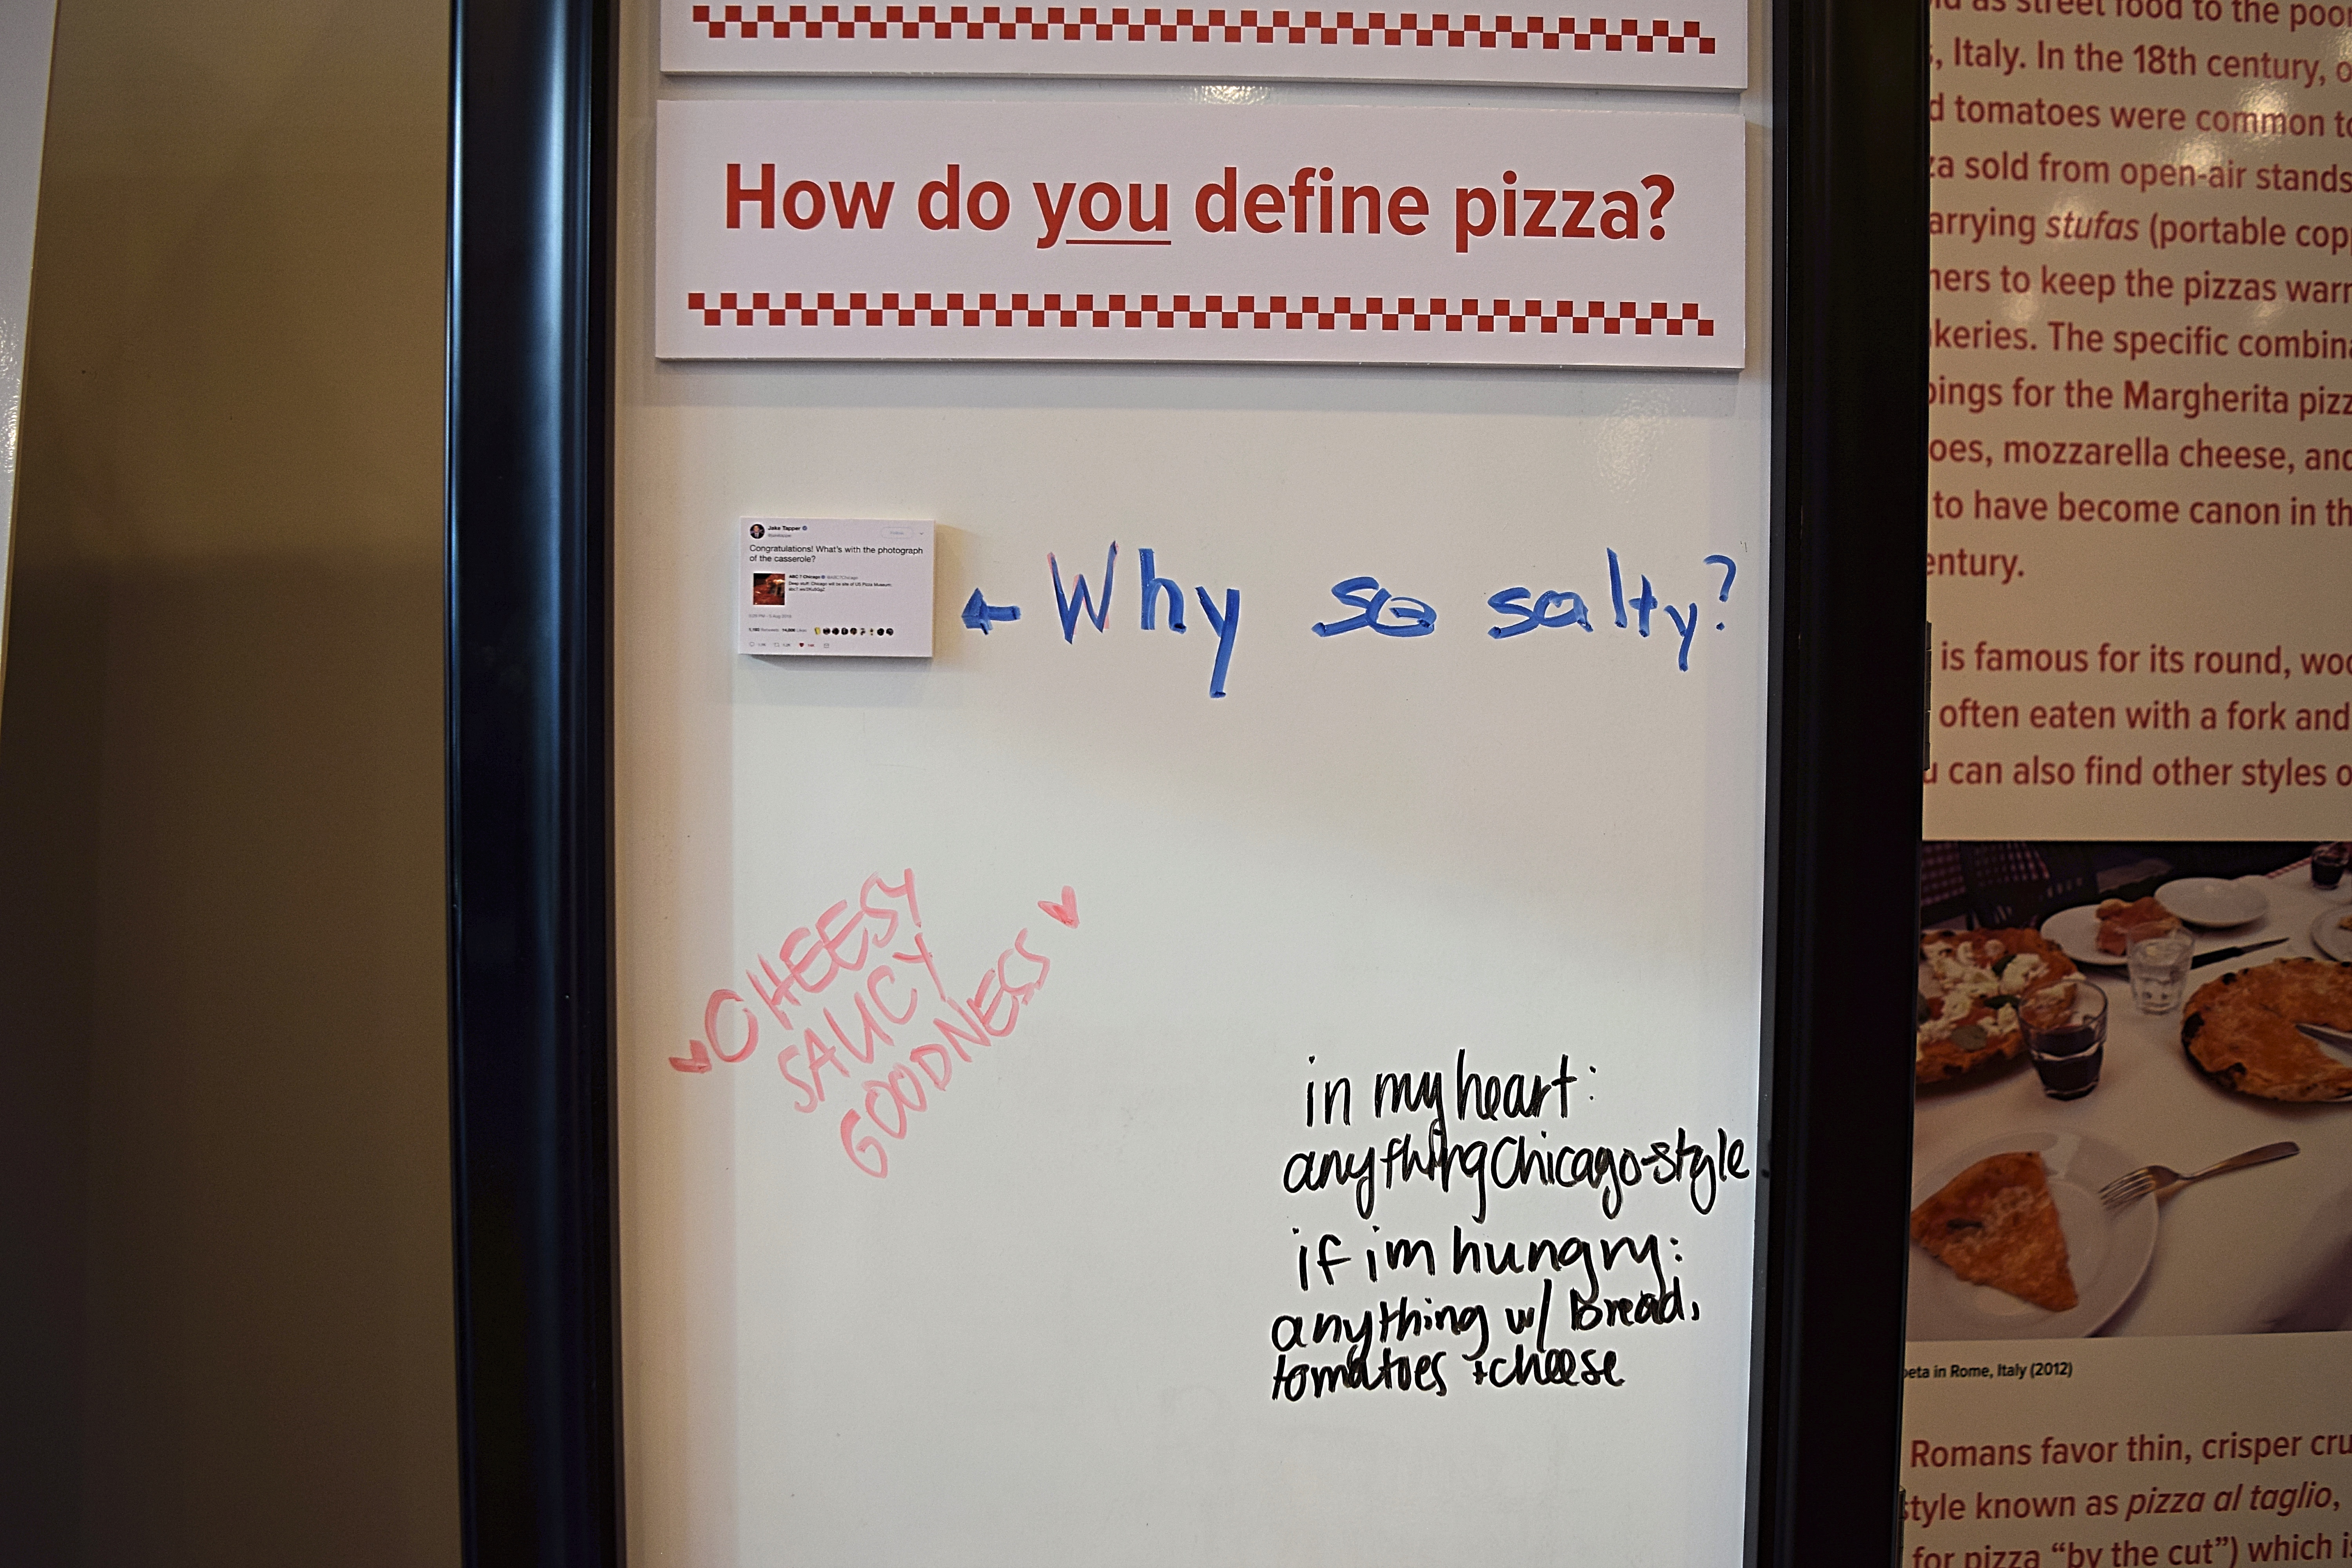 How do you define pizza?
Jake Tapper
Congratulations! What's with the photograph
of the casserole?
ABC 7 Chicago
Deep stuff: Chicago will be site of US Pizza Museum
Why so salty?
CHEESY
SAUCY
GOODNESS
in my heart:
anything Chicago-style
if im hungry:
anything w/ Bread,
tomatoes + cheese
as street food to the poor
, Italy. In the 18th century,
tomatoes were common
sold from open-air stands
arrying stufas (portable
to keep the pizzas
keries. The specific
for the Margherita
oes, mozzarella cheese, and
to have become canon in
entury.
is famous for its round,
often eaten with a fork and
can also find other styles
in Rome, Italy (2012)
Romans favor thin, crisper
style known as pizza al taglio,
for pizza “by the cut”) which